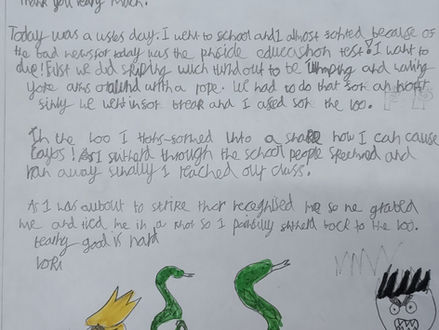 Thank you really much.
Today was a uses day. I went to school and I almost fainted because of
the bad news for today was the phiside educcishon test! I want to
due! First we did skipping wich turnd out to be jumping and waving
yore arms around with a rope. We had to do that for an hour
we went in for break and I a for the loo.
In the loo I trans-formed into a snake now I can cause
! As I slitherd through the school people screched and
ran away finally I reached our class.
As I was aubout to strike that recegnised me so he grabed
me and tied me in a knot so I painfully slitherd back to the loo.
good is hard